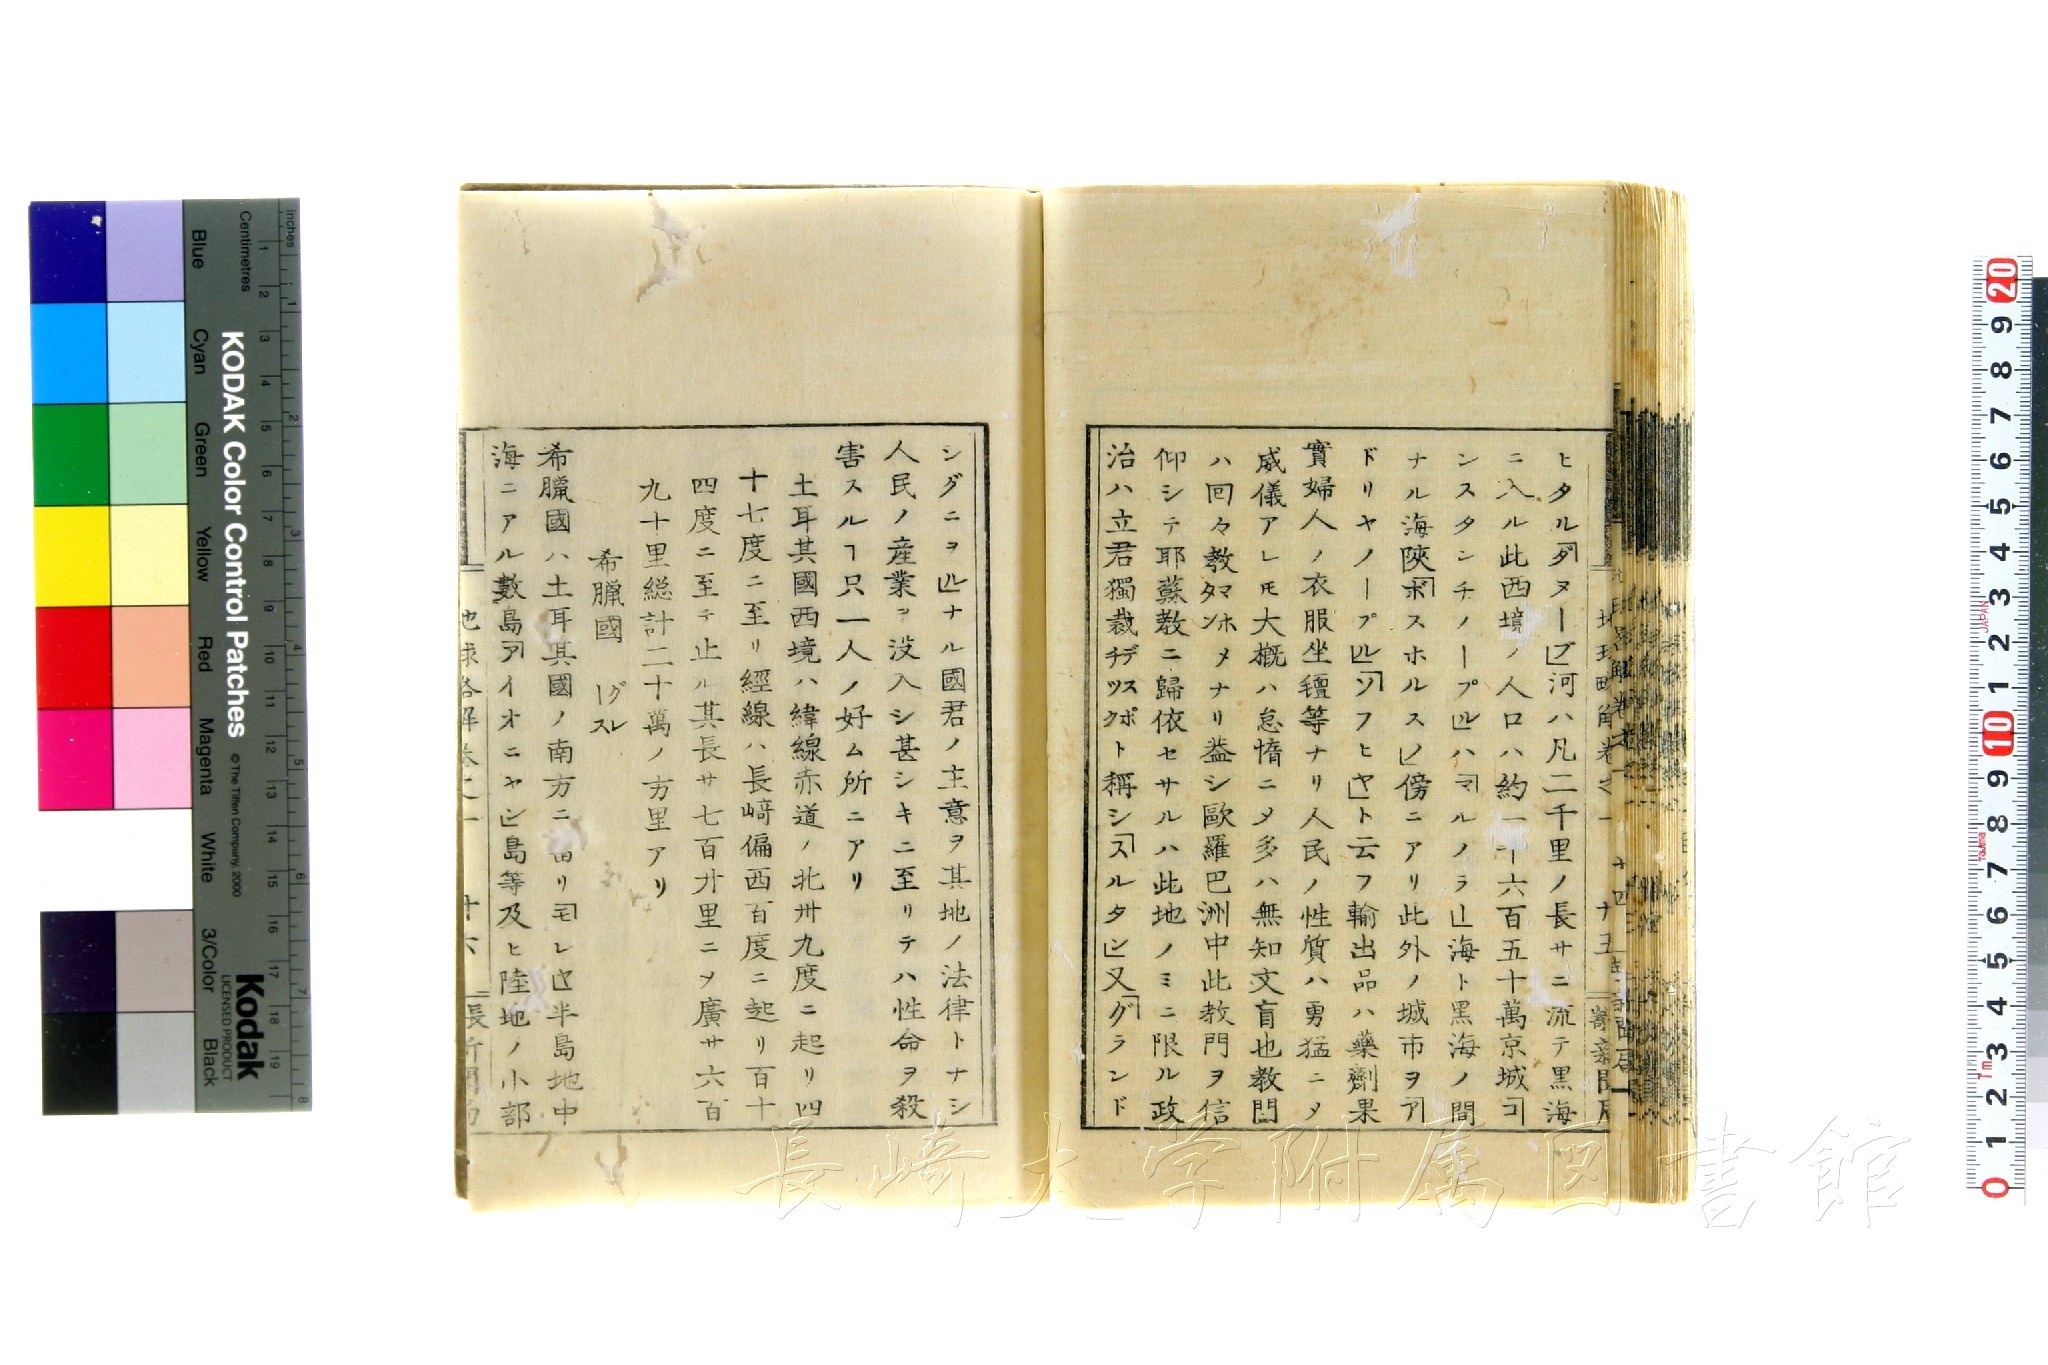 ヒタル「ダヌーブ」河ハ凡二千里ノ長サニ流テ黒海
ニ入ル此西境ノ人口ハ約一千六百五十萬京城「コ
ンスタンチノープル」ハ「マルノラ」海ト黒海ノ間
ナル海陝「ボスホルス」ノ傍ニアリ此外ノ城市ヲ「ア
ドリヤノープル」「ソフヒヤ」ト云フ輸出品ハ藥劑果
實婦人ノ衣服坐氊等ナリ人民ノ性質ハ勇猛ニメ
威儀アレ𪜈大概ハ怠惰ニメ多ハ無知文盲也教門
ハ回々教マホメタンナリ蓋シ歐羅巴洲中此教門ヲ信
仰シテ耶蘇教ニ歸依セサルハ此地ノミニ限ル政
治ハ立君獨裁デスポチツクト稱シ「スルタン」又「グランド
シグニヲル」ナル國君ノ主意ヲ其地ノ法律トナシ
人民ノ産業ヲ没入シ甚シキニ至リテハ性命ヲ殺
害スルヿ只一人ノ好ム所ニアリ
土耳其國西境ハ緯線赤道ノ北卅九度ニ起リ四
十七度ニ至リ經線ハ長﨑偏西百度ニ起リ百十
四度ニ至テ止ル其長サ七百廾里ニメ廣サ六百
九十里総計二十萬ノ方里アリ
希臘國 グレース
希臘國ハ土耳其國ノ南方ニ當リ「モレヤ」半島地中
海ニアル數島「アイオニヤン」島等及ヒ陸地ノ小部
地球略解卷之一 十五
地球略解卷之一 十六
長崎大学附属図書館
KODAK Color Control Patches
© The Tiffen Company, 2000
Kodak
LICENSED PRODUCT
Inches
Centimetres
Blue
Cyan
Green
Yellow
Red
Magenta
White
3/Color
Black